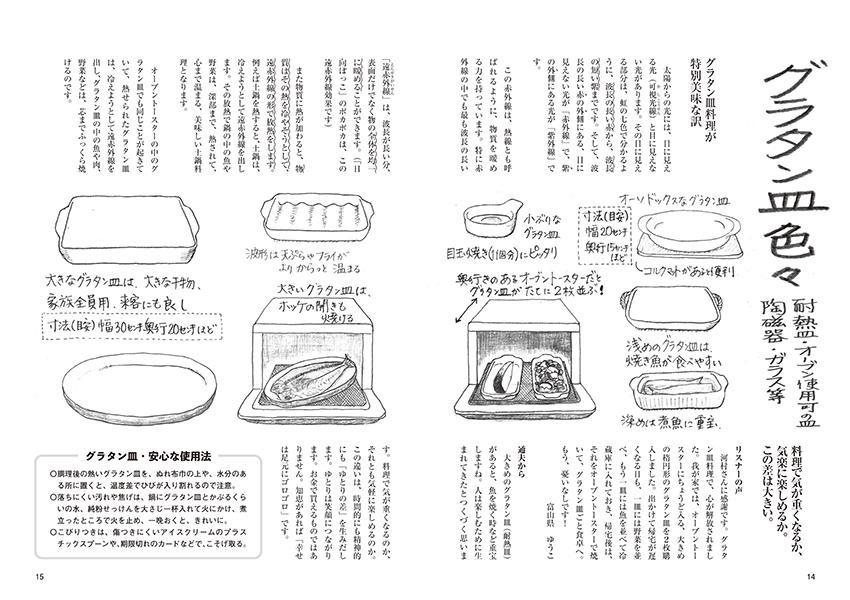 グラタン皿色々
耐熱皿・オーブン使用可の皿
陶磁器・ガラス等
グラタン皿料理が
特別美味な訳
太陽からの光には、目に見え
る光（可視光線）と目に見えな
い光があります。その目に見え
る部分は、虹の七色で分かるよ
うに、波長の長い赤から、波長
の短い紫までです。そして、波
長の長い赤の外側にある、目に
見えない光が「赤外線」で、紫
の外側にある光が「紫外線」で
す。
この赤外線は、熱線とも呼
ばれるように、物質を暖め
る力を持っています。特に赤
外線の中でも最も波長の長い
オーソドックスなグラタン皿
寸法(目安)
幅20センチ
奥行15センチ
ほど
コルクマットがあると便利
小ぶりな
グラタン皿
目玉焼き(1個分)にピッタリ
奥行きのあるオーブントースターだと
グラタン皿がたてに2枚並ぶ!
浅めのグラタン皿は、
焼き魚が食べやすい
深めは煮魚に重宝
料理で気が重くなるか、
気楽に楽しめるか。
この差は大きい。
リスナーの声
河村さんに感謝です。グラタ
ン皿料理で、心が解放されまし
た。我が家では、オーブントー
スターにちょうど入る、大きめ
の楕円形のグラタン皿を2枚購
入しました。出かけて帰宅が遅
くなる日も、一皿には野菜を並
べ、もう一皿には魚を並べて冷
蔵庫に入れておき、帰宅後は、
それをオーブントースターで焼
いて、グラタン皿ごと食卓へ。
もう、憂いなしです！
富山県　ゆうこ
通夫から
大きめのグラタン皿（耐熱皿）
があると、魚を焼く時など重宝
しますね。人は楽しむために生
まれてきたとつくづく思いま
14
「遠赤外線」は、波長が長い分、
表面だけでなく物の全体を均一
に暖めることができます。（「日
向ぼっこ」のポカポカは、この
遠赤外線効果です）
また物質に熱が加わると、物
質はその熱を冷やそうとして、
遠赤外線の形で放熱をします。
例えば土鍋を熱すると、土鍋は、
冷えようとして遠赤外線を出し
ます。その放熱で鍋の中の魚や
野菜は、深部まで、熱されて、
心まで温まる、美味しい土鍋料
理となります。
オーブントースターの中のグ
ラタン皿でも同じことが起きて
いて、熱せられたグラタン皿
は、冷えようとして遠赤外線を
出し、グラタン皿の中の魚や肉、
野菜などは、芯までふっくら焼
けるのです。
波形は天ぷらやフライが
よりからっと 温まる
大きいグラタン皿は、
ホッケの開きも
焼ける
大きなグラタン皿は、大きな干物、
家族全員用、来客にも良し
寸法(目安)幅30センチ奥行20センチほど
す。料理で気が重くなるのか、
それとも気軽に楽しめるのか。
この違いは、時間的にも精神的
にも「ゆとりの差」を生みだし
ます。ゆとりは笑顔につながり
ます。お金で買えるものではあ
りません。知恵があれば「幸せ
は足元にゴロゴロ」です。
グラタン皿・安心な使用法
○調理後の熱いグラタン皿を、ぬれ布巾の上や、水分のあ
る所に置くと、温度差でひびが入り割れるので注意。
○落ちにくい汚れや焦げは、鍋にグラタン皿とかぶるくら
いの水、純粉せっけんを大さじ一杯入れて火にかけ、煮
立ったところで火を止め、一晩おくと、きれいに。
○こびりつきは、傷つきにくいアイスクリームのプラス
チックスプーンや、期限切れのカードなどで、こそげ取る。
15